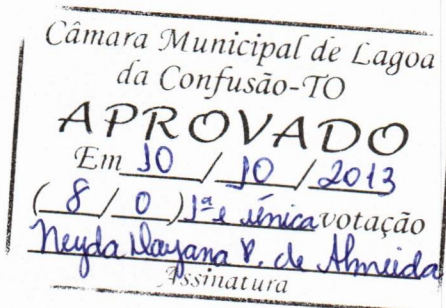 Câmara Municipal de Lagoa
da Confusão-TO
APROVADO
Em 10 / 10 / 2013
( 8 / 0 ) 1ª e única votação
Neyda Nayana P. de Almeida
Assinatura